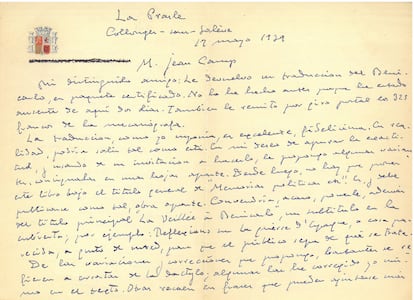 La Prasle
Collonges-sous-Salève
17 mayo 1939
M. Jean Camp
Mi distinguido amigo: Le devuelvo su traducción del Beni-
carló, en paquete certificado. No lo he hecho antes porque he estado
ausente de aquí dos días. También le remito por giro postal los 325
francos de la mecanógrafa.
La traducción, como yo suponía, es excelente, fidelísima. En rea-
lidad, podría salir tal como está. En mi deseo de apurar la exacti-
tud, y usando de su invitación a hacerlo, le propongo algunas varian-
tes, consignadas en una hoja aparte. Desde luego, no hay que poner
este libro bajo el título general de Memorias políticas etc., y debe
publicarse como tal, obra aparte. Convendría, acaso, ponerle, además
del título principal La Veillée à Benicarló, un subtítulo en la
cubierta, por ejemplo: Réflexions sur la guerre d'Espagne, o cosa pare-
cida, a gusto de usted, para que el público sepa de qué se trata.
De las variaciones y correcciones que propongo, bastantes se re-
fieren a erratas de la dactylo; algunas las he corregido yo mis-
mo en el texto. Otras recaen en frases que pueden